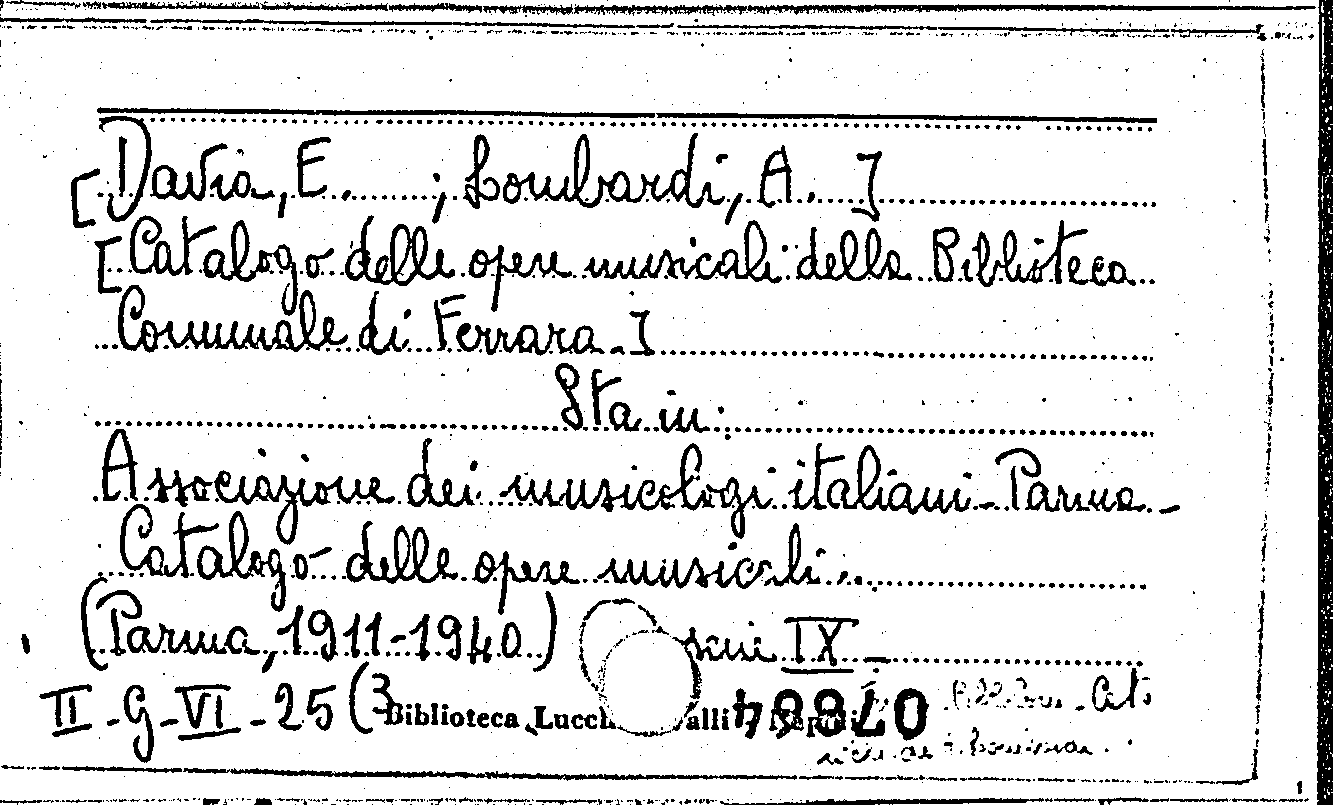 [Davia, E. ; Lombardi, A. ]
[Catalogo delle opere musicali della Biblioteca
Comunale di Ferrara.]
Sta in:
Associazione dei musicologi italiani - Parma -
Catalogo delle opere musicali...
(Parma, 1911-1940) serie IX -
II - G - VI - 25 (3
Biblioteca Lucch alli